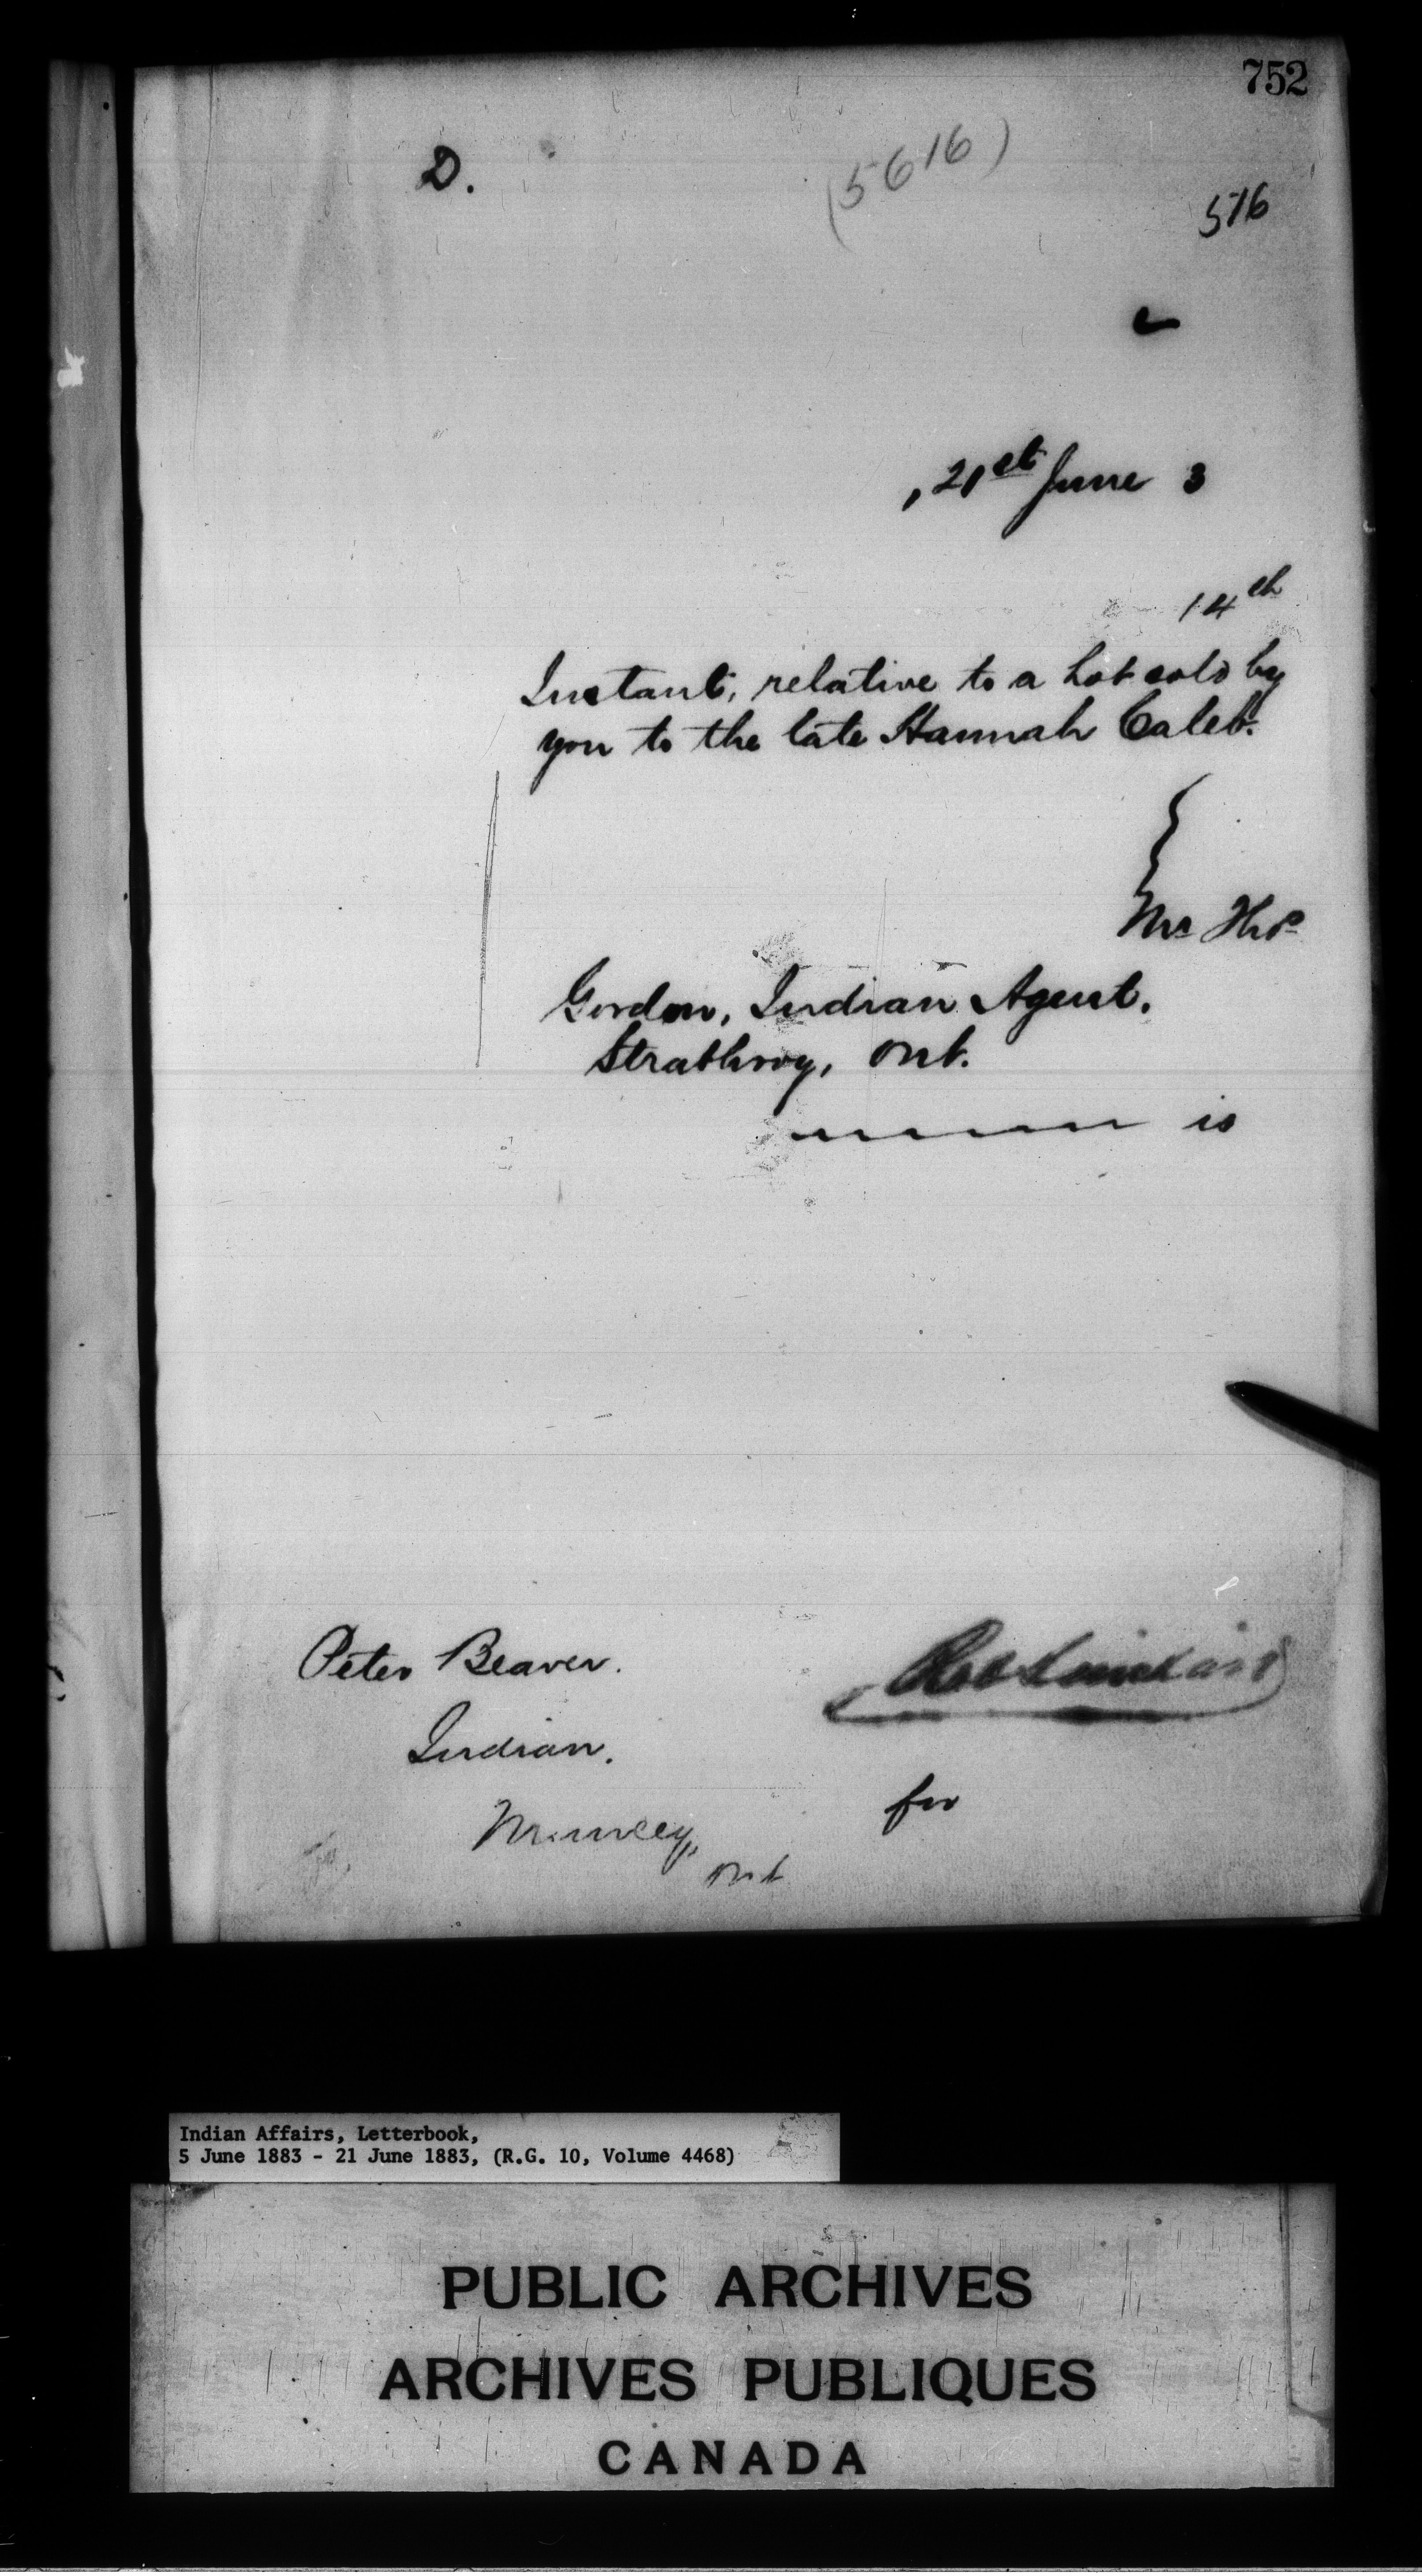 752
D.
(5616)
516
, 21st June 3
14th
Instant, relative to a Lot sold by
you to the late Hannah Caleb.
Mr Thos
Gordon, Indian Agent.
Strathroy, Ont.
is
Peter Beaver.
Indian.
Muncey,
Ont
for
Indian Affairs, Letterbook,
5 June 1883 - 21 June 1883, (R.G. 10, Volume 4468)
PUBLIC ARCHIVES
ARCHIVES PUBLIQUES
CANADA